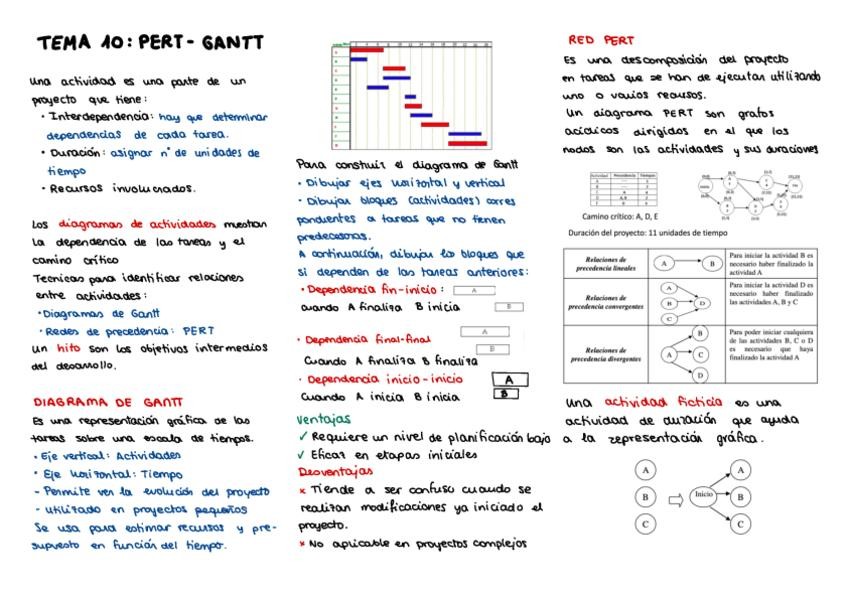 TEMA 10: PERT - GANTT
Una actividad es una parte de un
proyecto que tiene:
• Interdependencia: hay que determinar
dependencias de cada tarea.
• Duración: asignar nº de unidades de
tiempo
• Recursos involucrados.
Los diagramas de actividades muestran
la dependencia de las tareas y el
camino crítico
Tecnicas para identificar relaciones
entre actividades:
• Diagramas de Gantt
• Redes de precedencia: PERT
Un hito son los objetivos intermedios
del desarrollo.
DIAGRAMA DE GANTT
Es una representación gráfica de las
tareas sobre una escala de tiempos.
• Eje vertical: Actividades
• Eje horizontal: Tiempo
- Permite ver la evolución del proyecto
- utilizado en proyectos pequeños
Se usa para estimar recursos y pre-
supuesto en función del tiempo.
Para construir el diagrama de Gantt
• Dibujar ejes horizontal y vertical
• Dibujar bloques (actividades) corres
pondientes a tareas que no tienen
predecesoras.
A continuación, dibujar los bloques que
si dependen de las tareas anteriores:
• Dependencia fin-inicio: A
cuando A finaliza B inicia B
A
• Dependencia final-final
B
Cuando A finaliza B finaliza
• Dependencia inicio-inicio A
Cuando A inicia B inicia B
Ventajas
✓ Requiere un nivel de planificación bajo
✓ Eficaz en etapas iniciales
Desventajas
× Tiende a ser confuso cuando se
realizan modificaciones ya iniciado el
proyecto.
× No aplicable en proyectos complejos
RED PERT
Es una descomposición del proyecto
en tareas que se han de ejecutar utilizando
uno o varios recursos.
Un diagrama PERT son grafos
acíclicos dirigidos en el que los
nodos son las actividades y sus duraciones
Actividad Precedencia Tiempo
Camino crítico: A, D, E
Duración del proyecto: 11 unidades de tiempo
Relaciones de
precedencia lineales
A B
Para iniciar la actividad B es
necesario haber finalizado la
actividad A
Relaciones de
precedencia convergentes
A
B D
C
Para iniciar la actividad D es
necesario haber finalizado
las actividades A, B y C
Relaciones de
precedencia divergentes
B
A C
D
Para poder iniciar cualquiera
de las actividades B, C o D
es necesario que haya
finalizado la actividad A
Una actividad ficticia es una
actividad de duración que ayuda
a la representación gráfica.
A A
B Inicio B
C C